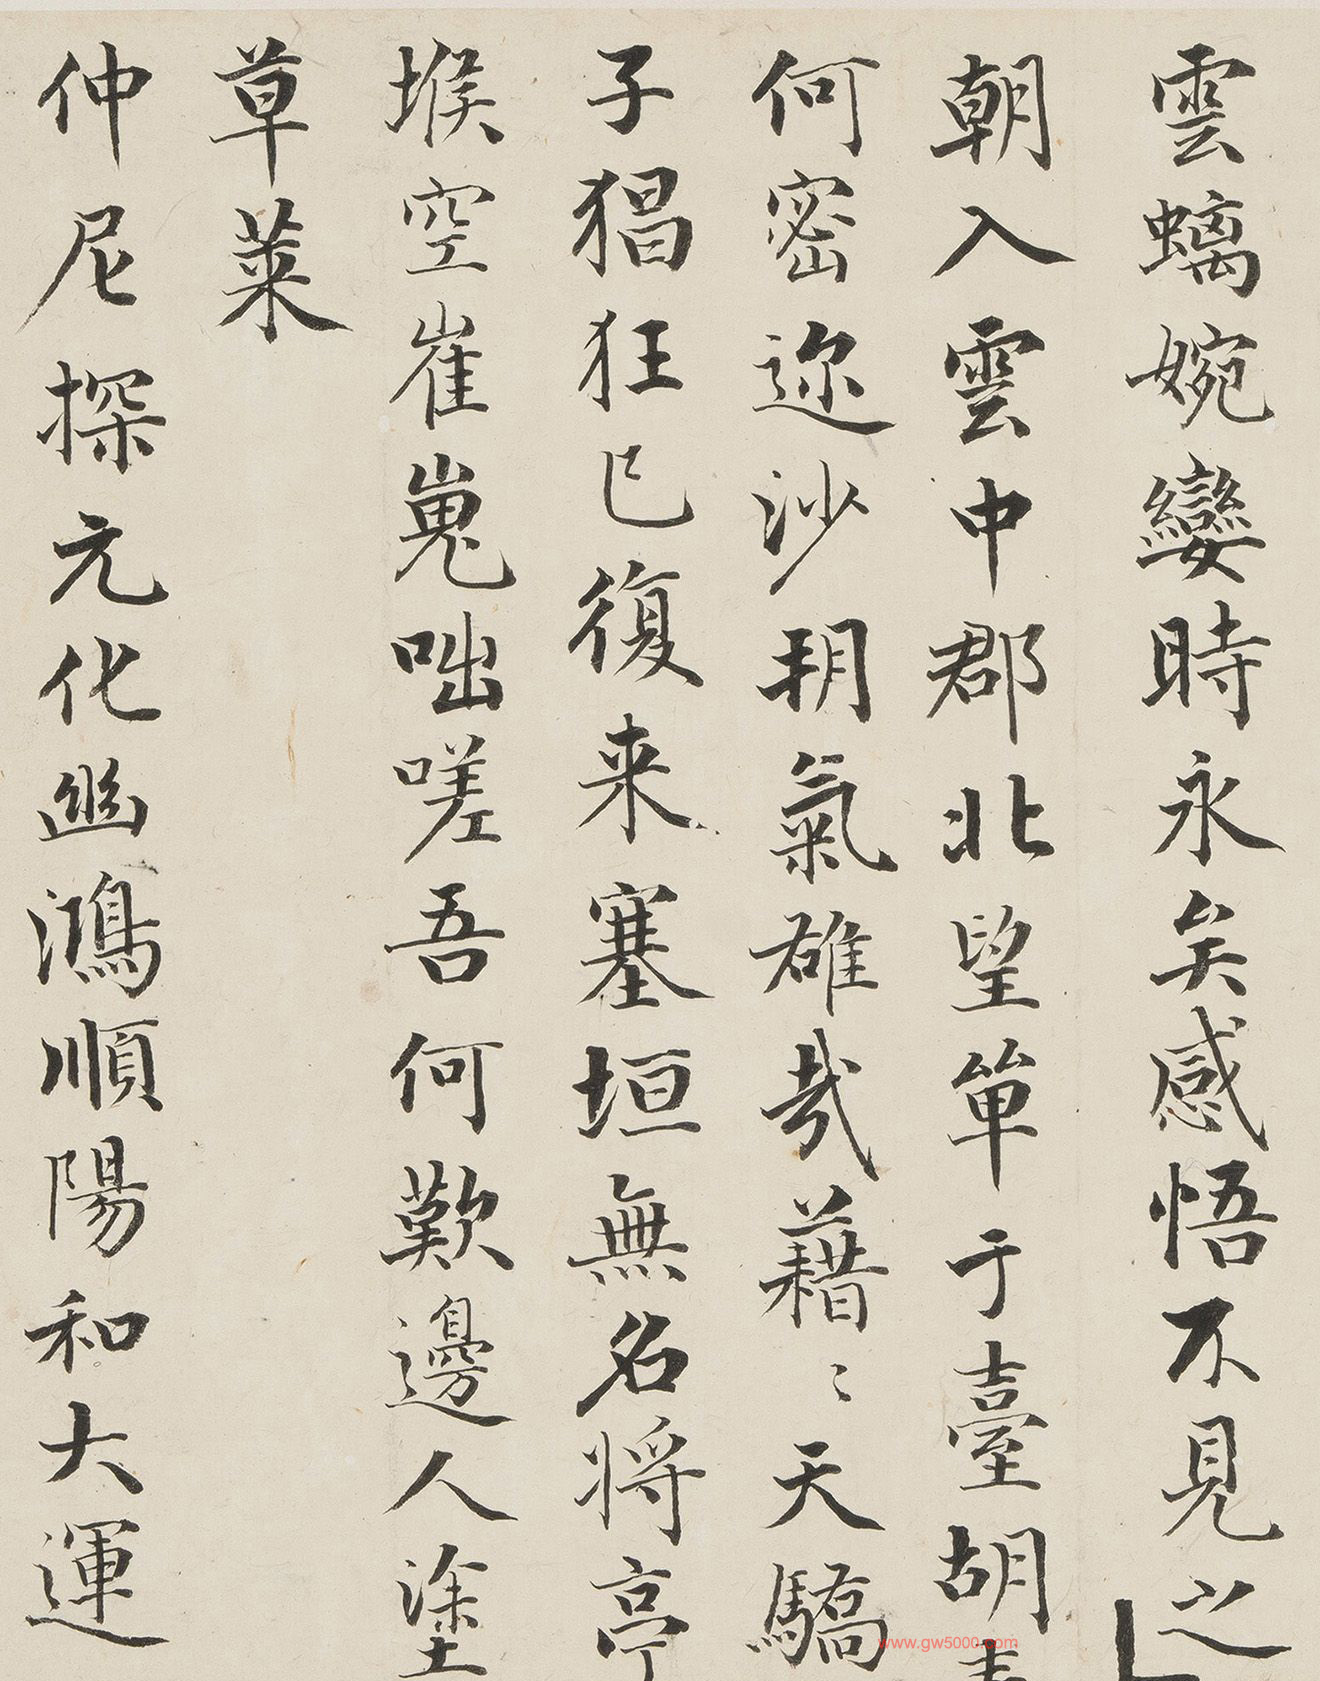 雲螭婉孌時永矣感悟不見之
朝入雲中郡北望單于臺胡
何密迩沙朔氣雄哉藉〻天驕
子猖狂已復来塞垣無名将亭
堠空崔嵬咄嗟吾何歎邊人塗
草萊
仲尼探元化幽鴻順陽和大運
www.gw5000.com